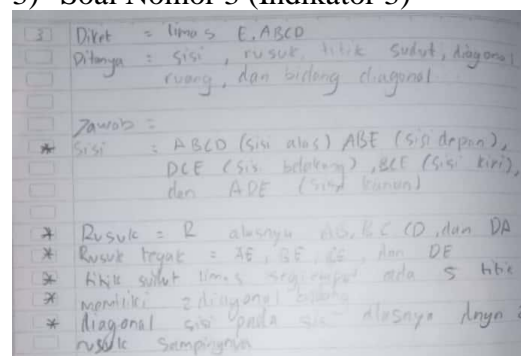 3) Soal Nomor 3 (Indikator 3)
3 Diket = limas E.ABCD
Ditanya = sisi, rusuk, titik sudut, diagonal
ruang, dan bidang diagonal
Jawab =
* sisi = ABCD (sisi alas) ABE (sisi depan),
DCE (sisi belakang), BCE (sisi kiri),
dan ADE (sisi kanan)
* Rusuk = R alasnya AB, BC, CD, dan DA
* Rusuk tegak = AE, BE, CE, dan DE
* titik sudut limas segiempat ada 5 titik
* memiliki 2 diagonal bidang
* diagonal sisi pada sisi alasnya
rusuk sampingnya